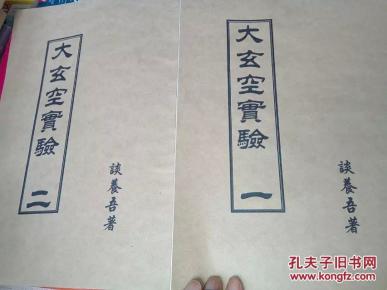 大玄空實驗 一
談養吾著
大玄空實驗 二
談養吾著
孔夫子旧书网